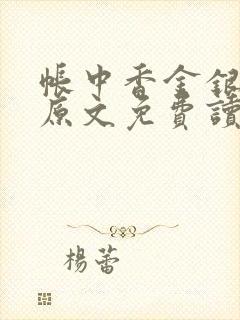 帳中香金銀
原文免費讀
楊蕾